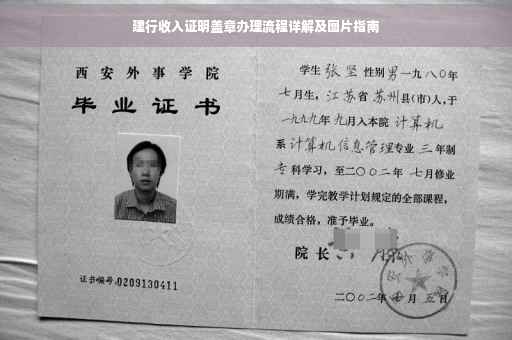 建行收入证明盖章办理流程详解及图片指南
西安外事学院
毕业证书
证书编号:0209130411
学生 张坚 性别 男 一九八〇年
七月生, 江苏省 苏州县(市)人,于
一九九九年 九月入本院 计算机
系 计算机信息管理专业 三 年制
专 科学习, 至二〇〇二年 七月修业
期满, 学完教学计划规定的全部课程,
成绩合格, 准予毕业。
院长
二〇〇二年 七月 五日